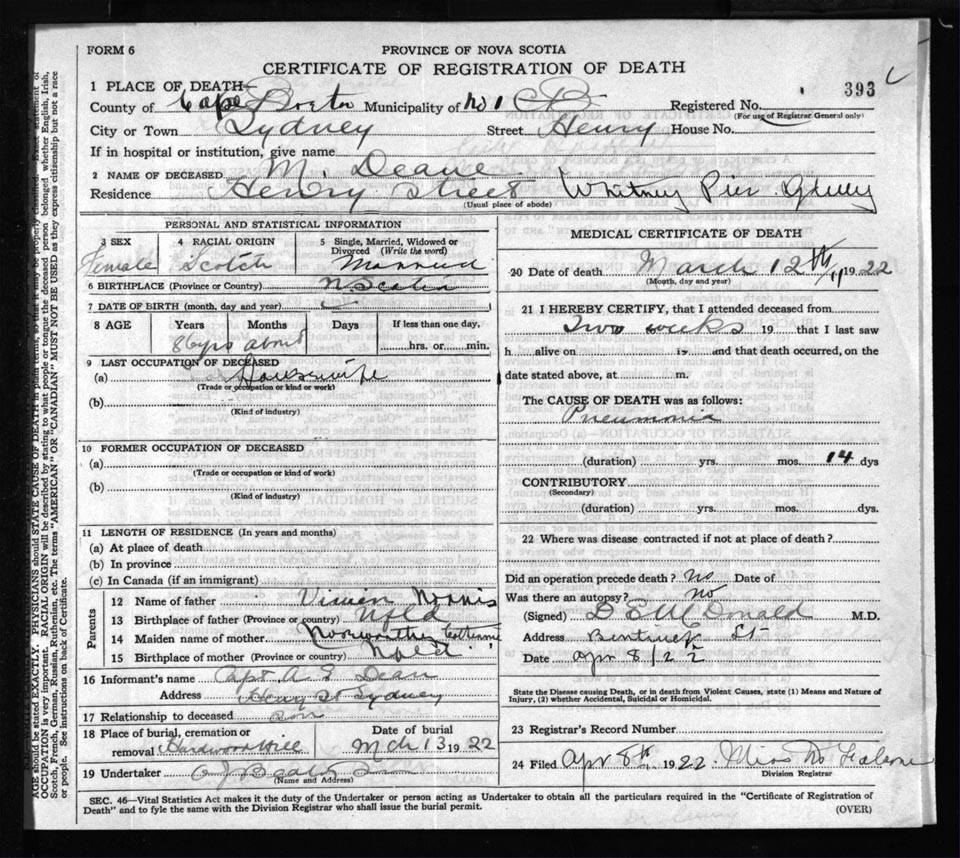 FORM 6
PROVINCE OF NOVA SCOTIA
CERTIFICATE OF REGISTRATION OF DEATH
393
1 PLACE OF DEATH—
County of Cape Breton Municipality of No 1 CB Registered No.
(For use of Registrar General only)
City or Town Sydney Street Henry House No.
If in hospital or institution, give name
2 NAME OF DECEASED M. Deane
Residence Henry Street Whitney Pier Sydney
(Usual place of abode)
PERSONAL AND STATISTICAL INFORMATION
3 SEX 4 RACIAL ORIGIN 5 Single, Married, Widowed or Divorced (Write the word)
Female Scotch Married
6 BIRTHPLACE (Province or Country) N. Scotia
7 DATE OF BIRTH (month, day and year)
8 AGE Years Months Days If less than one day,
86 yrs about hrs. or min.
9 LAST OCCUPATION OF DECEASED
(a) Housewife
(Trade or occupation or kind or work)
(b)
(Kind of industry)
10 FORMER OCCUPATION OF DECEASED
(a)
(Trade or occupation or kind of work)
(b)
(Kind of industry)
11 LENGTH OF RESIDENCE (In years and months)
(a) At place of death
(b) In province
(c) In Canada (if an immigrant)
Parents
12 Name of father Norris
13 Birthplace of father (Province or country) Nfld
14 Maiden name of mother
15 Birthplace of mother (Province or country) Nfld
16 Informant's name Capt A. E Dean
Address Henry St Sydney
17 Relationship to deceased son
18 Place of burial, cremation or removal Hardwood Hill Date of burial Mch 13 1922
19 Undertaker
(Name and Address)
MEDICAL CERTIFICATE OF DEATH
20 Date of death March 12th 1922
(Month, day and year)
21 I HEREBY CERTIFY, that I attended deceased from
Two weeks 19 that I last saw
h alive on 19 and that death occurred, on the
date stated above, at m.
The CAUSE OF DEATH was as follows:
Pneumonia
(duration) yrs. mos. 14 dys
CONTRIBUTORY
(Secondary)
(duration) yrs. mos. dys.
22 Where was disease contracted if not at place of death?
Did an operation precede death? no Date of
Was there an autopsy? no
(Signed) D E McDonald M.D.
Address St
Date Apr 8/22
State the Disease causing Death, or in death from Violent Causes, state (1) Means and Nature of Injury, (2) whether Accidental, Suicidal or Homicidal.
23 Registrar's Record Number
24 Filed Apr 8th 1922 Miss
Division Registrar
SEC. 46—Vital Statistics Act makes it the duty of the Undertaker or person acting as Undertaker to obtain all the particulars required in the "Certificate of Registration of
Death" and to fyle the same with the Division Registrar who shall issue the burial permit. (OVER)
AGE should be stated EXACTLY. PHYSICIANS should STATE CAUSE OF DEATH in plain terms, so that it may be properly classified. Exact statement of
OCCUPATION is very important. RACIAL ORIGIN will be described by stating to what people or tongue the deceased person belonged, whether English, Irish,
Scotch, French, German, Russian, Ruthenian, etc. The terms "AMERICAN" OR "CANADIAN" MUST NOT BE USED as they express citizenship but not a race
or people. See instructions on back of Certificate.